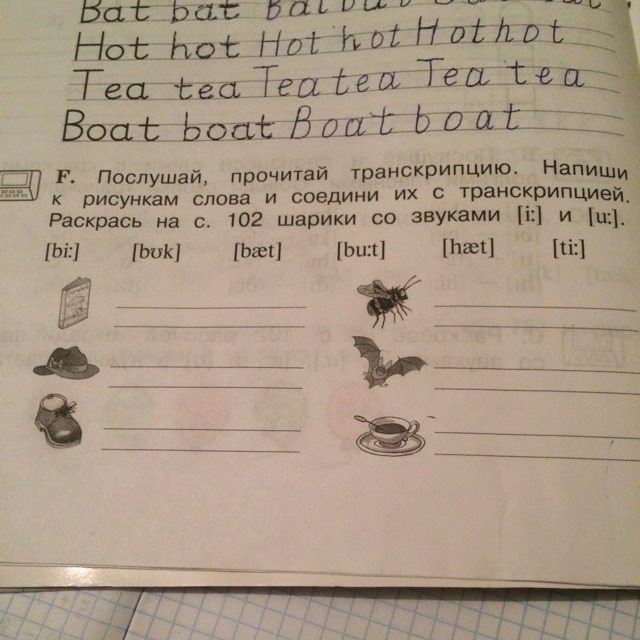 Bat bat Bat bat
Hot hot Hot hot Hot hot
Tea tea Tea tea Tea tea
Boat boat Boat boat
F. Послушай, прочитай транскрипцию. Напиши
к рисункам слова и соедини их с транскрипцией.
Раскрась на с. 102 шарики со звуками [i:] и [u:].
[bi:] [bʊk] [bæt] [bu:t] [hæt] [ti:]